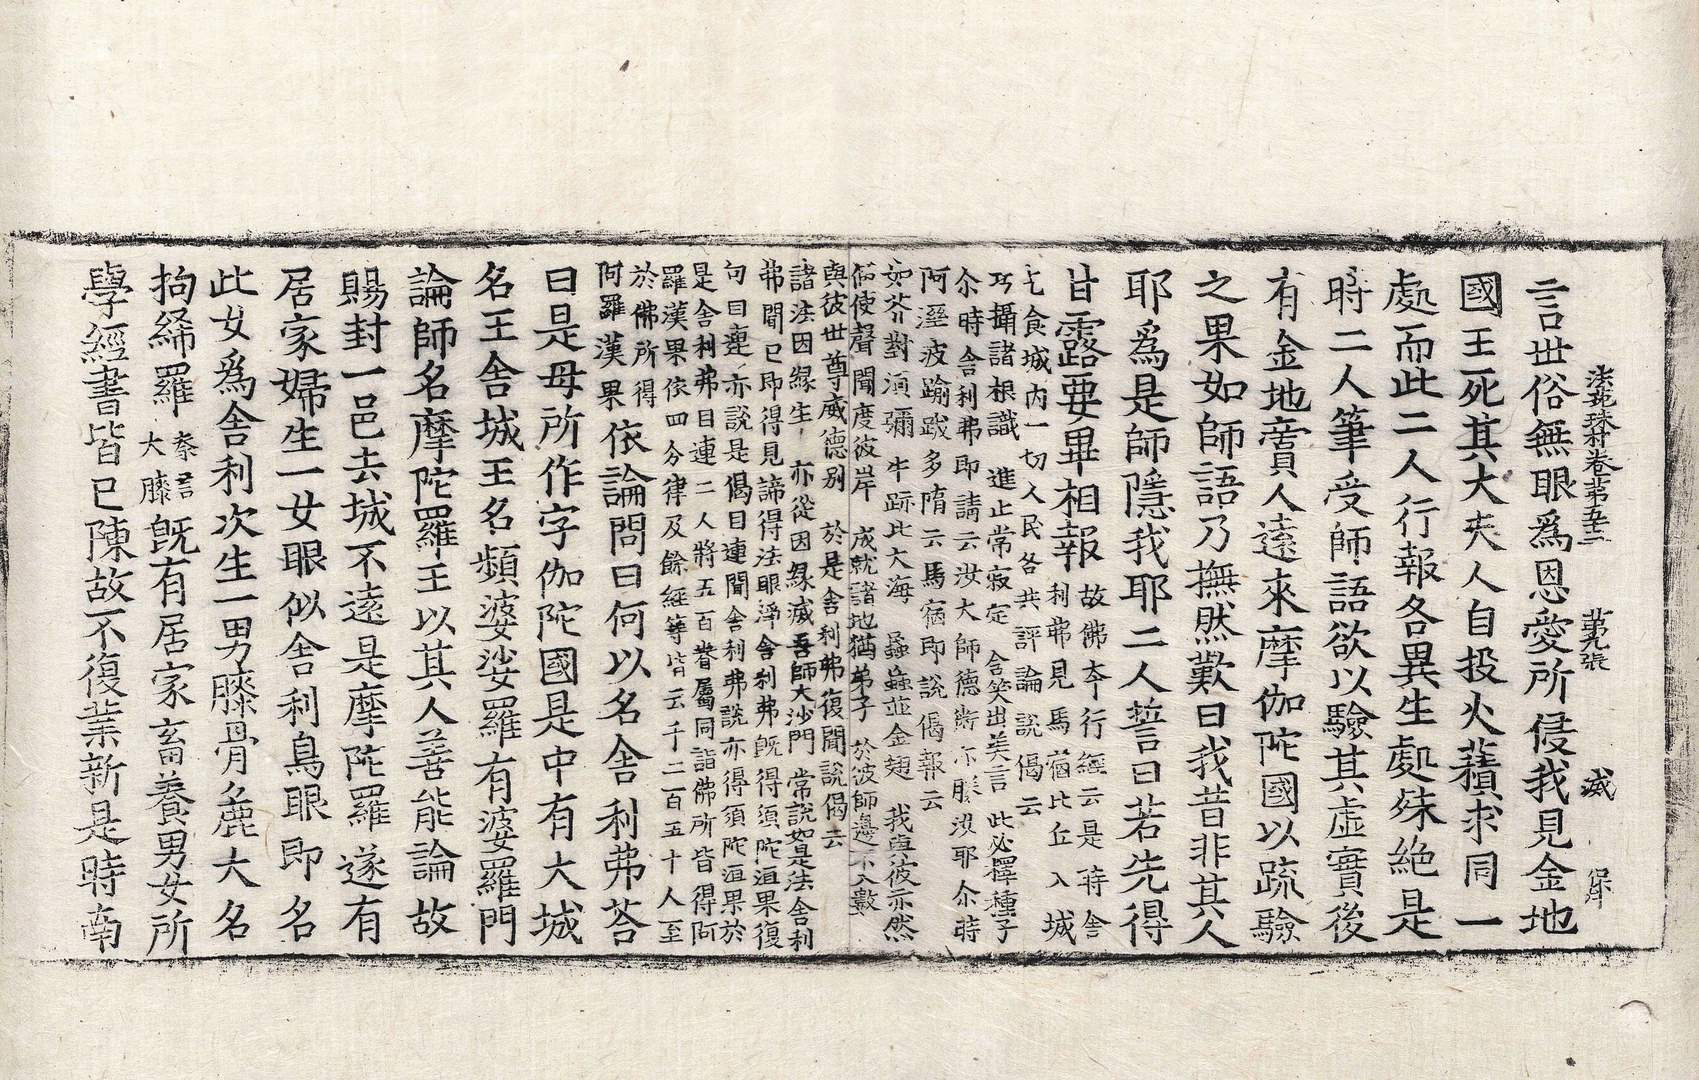 法苑珠林卷第五三 第九張 咸
言世俗無眼爲恩愛所侵我見金地
國王死其大夫人自投火𧂐求同一
處而此二人行報各異生處殊絕是
時二人筆受師語欲以驗其虛實後
有金地賣人遠來摩伽陀國以疏驗
之果如師語乃撫然歎曰我昔非其人
耶爲是師隱我耶二人誓曰若先得
甘露要畢相報
故佛本行經云是時舍
利弗見馬宿比丘入城
乞食城內一切人民各共評論說偈云
巧攝諸根識 進止常寂定 含笑出美言 此必釋種子
尒時舍利弗即請云汝大師德 汝耶尒時
阿濕波踰跋多隋云馬宿即說偈報云
如芥對湏彌 牛跡比大海 蟁蝱並金翅 我與彼亦然
假使聲聞度彼岸 成就諸地猶弟子 於彼師邊不入數
與彼世尊威德别 於是舍利弗復聞說偈云
諸法因緣生 亦從因緣滅 吾師大沙門 常說如是法舍利
弗聞已即得見諦得法眼淨舍利弗既得湏陀洹果復
句目連亦說是偈目連聞舍利弗說亦得湏陀洹果於
是舍利弗目連二人將五百眷屬同詣佛所皆得阿
羅漢果依四分律及餘經等皆云千二百五十人至
於佛所得
阿羅漢果
依論問曰何以名舍利弗荅
曰是母所作字伽陀國是中有大城
名王舍城王名頻婆娑羅有婆羅門
論師名摩陀羅王以其人善能論故
賜封一邑去城不遠是摩陀羅遂有
居家婦生一女眼似舍利鳥眼即名
此女爲舍利次生一男膝骨麁大名
拘絺羅 秦言大膝 既有居家畜養男女所
學經書皆已陳故不復業新是時南